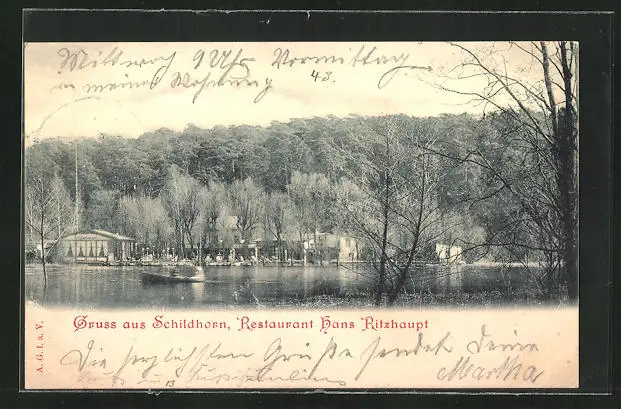 Mittwoch 9 Uhr Vormittag
in meine Wohnung 43.
Gruss aus Schildhorn, Restaurant Hans Ritzhaupt
A. G. i. a. V.
Die herzlichsten Grüße sendet Deine
Martha